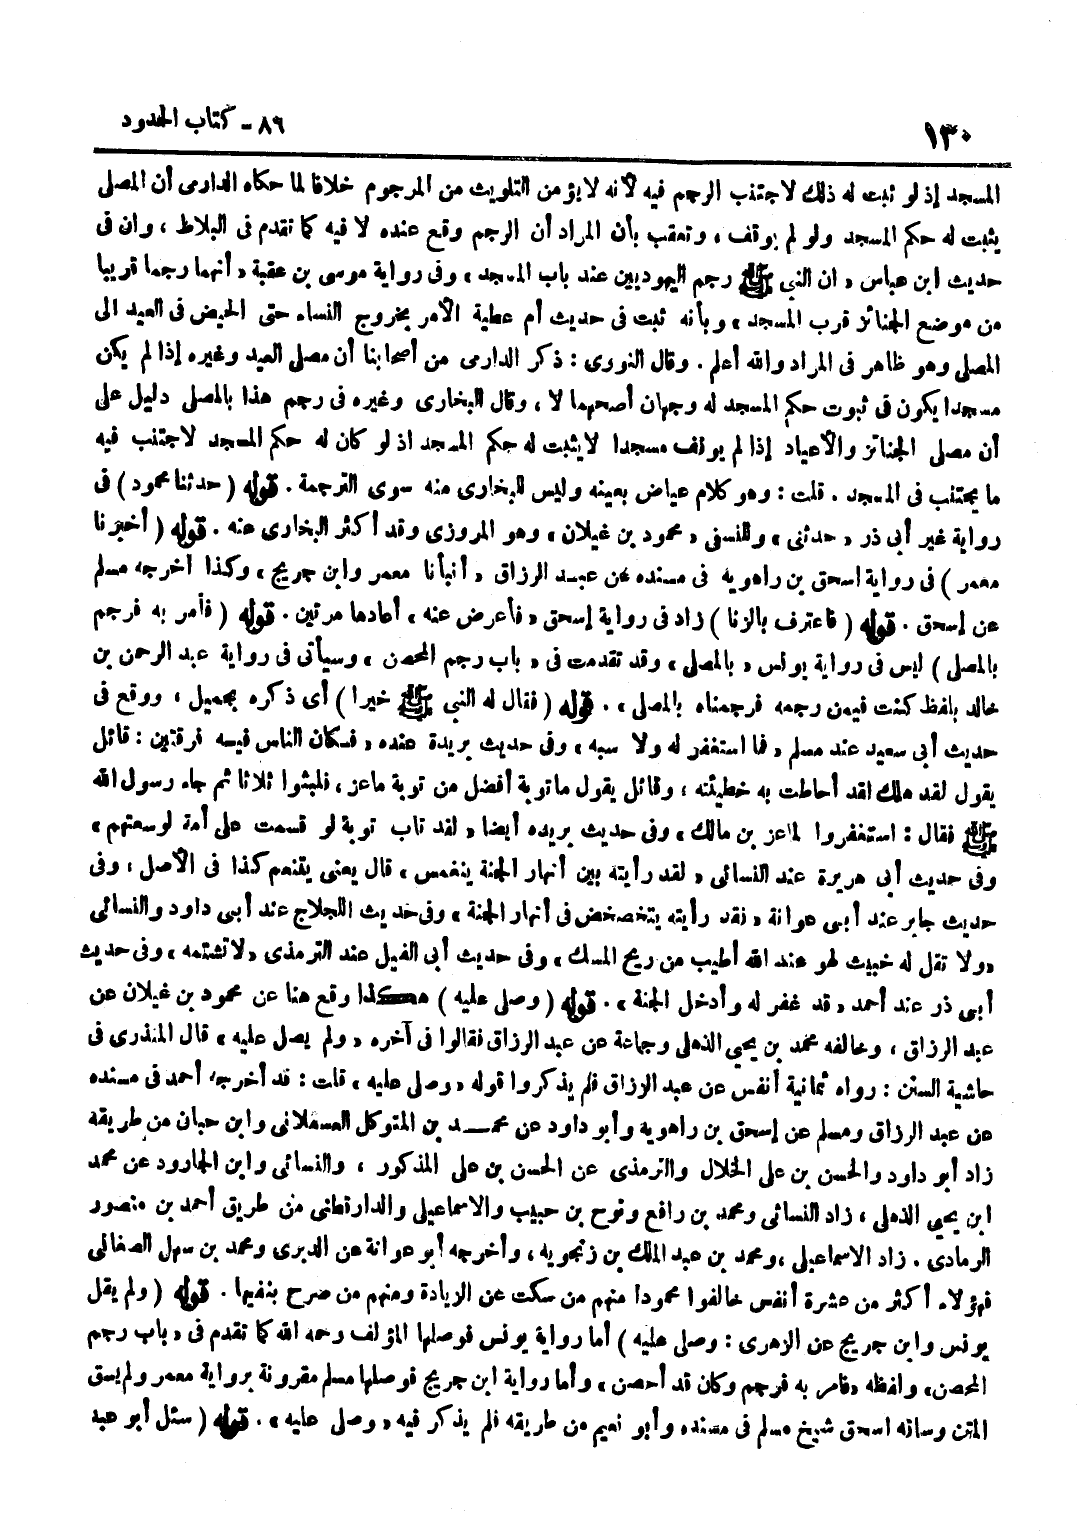 ١٣٠
٨٦ - كتاب الحدود
المسجد إذ لو ثبت له ذلك لاجتنب الرجم فيه لأنه لا يؤمن التلويث من المرجوم خلافا لما حكاه الدارمى أن المصلى
يثبت له حكم المسجد ولو لم يوقف ، وتعقب بأن المراد أن الرجم وقع عنده لا فيه كما تقدم فى البلاط ، وان فى
حديث ابن عباس « ان النبي ﷺ رجم اليهوديين عند باب المسجد ، وفى رواية موسى بن عقبة « أنهما رجما قريبا
من موضع الجنائز قرب المسجد » وبأنه ثبت فى حديث أم عطية الأمر بخروج النساء حتى الحيض فى العيد الى
المصلى وهو ظاهر فى المراد والله أعلم . وقال النووى : ذكر الدارمى من أصحابنا أن مصلى العيد وغيره إذا لم يكن
مسجدا يكون فى ثبوت حكم المسجد له وجهان أصحهما لا ، وقال البخارى وغيره فى رجم هذا بالمصلى دليل على
أن مصلى الجنائز والأعياد إذا لم يوقف مسجدا لا يثبت له حكم المسجد اذ لو كان له حكم المسجد لاجتنب فيه
ما يجتنب فى المسجد . قلت : وهو كلام عياض بعينه وليس للبخارى منه سوى الترجمة . قوله ( حدثنا محمود ) فى
رواية غير أبى ذر « حدثنى » وللنسفى « محمود بن غيلان » وهو المروزى وقد أكثر البخارى عنه . قوله ( أخبرنا
معمر ) فى رواية اسحق بن راهويه فى مسنده عن عبد الرزاق « أنبأنا معمر وابن جريج » وكذا أخرجه مسلم
عن إسحق . قوله ( فاعترف بالزنا ) زاد فى رواية إسحق « فأعرض عنه » أعادها مرتين . قوله ( فأمر به فرجم
بالمصلى ) ليس فى رواية يونس « بالمصلى » وقد تقدمت فى « باب رجم المحصن » وسيأتى فى رواية عبد الرحمن بن
خالد بلفظ كنت فيمن رجمه فرجمناه بالمصلى » . قوله ( فقال له النبي ﷺ خيرا ) أى ذكره بجميل ، ووقع فى
حديث أبى سعيد عند مسلم « فما استغفر له ولا سبه » وفى حديث بريدة عنده « فكان الناس فيه فرقتين : قائل
يقول لقد هلك لقد أحاطت به خطيئته ، وقائل يقول ما توبة أفضل من توبة ماعز ، فلبثوا ثلاثا ثم جاء رسول الله
ﷺ فقال : استغفروا لماعز بن مالك » وفى حديث بريده أيضا « لقد تاب توبة لو قسمت على أمة لوسعتهم »
وفى حديث أبى هريرة عند النسائى « لقد رأيته بين أنهار الجنة ينغمس » قال يعنى يتنعم كذا فى الأصل ، وفى
حديث جابر عند أبى عوانة « فقد رأيته يتخضخض فى أنهار الجنة » وفى حديث اللجلاج عند أبى داود والنسائى
« ولا تقل له خبيث لهو عند الله أطيب من ريح المسك » وفى حديث أبى الفيل عند الترمذى « لا تشتمه » وفى حديث
أبى ذر عند أحمد « قد غفر له وأدخل الجنة » . قوله ( وصلى عليه ) هكذا وقع هنا عن محمود بن غيلان عن
عبد الرزاق ، وخالفه محمد بن يحيى الذهلى وجماعة عن عبد الرزاق فقالوا فى آخره « ولم يصل عليه » قال المنذرى فى
حاشية السنن : رواه ثمانية أنفس عن عبد الرزاق فلم يذكروا قوله « وصلى عليه » قلت : قد أخرجه أحمد فى مسنده
عن عبد الرزاق ومسلم عن إسحق بن راهويه وأبو داود عن محمد بن المتوكل العسقلانى وابن حبان من طريقه
زاد أبو داود والحسن بن على الخلال والترمذى عن الحسن بن على المذكور ، والنسائى وابن الجارود عن محمد
ابن يحيى الذهلى ، زاد النسائى ومحمد بن رافع ونوح بن حبيب والاسماعيلى والدارقطنى من طريق أحمد بن منصور
الرمادى . زاد الاسماعيلى ، ومحمد بن عبد الملك بن زنجويه ، وأخرجه أبو عوانة عن الدبرى ومحمد بن سهل الصغانى
فهؤلاء أكثر من عشرة أنفس خالفوا محمودا منهم من سكت عن الزيادة ومنهم من صرح بنفيها . قوله ( ولم يقل
يونس وابن جريج عن الزهرى : وصلى عليه ) أما رواية يونس فوصلها المؤلف رحمه الله كما تقدم فى « باب رجم
المحصن » ولفظه « فأمر به فرجم وكان قد أحصن » وأما رواية ابن جريج فوصلها مسلم مقرونة برواية معمر ولم يسق
المتن وساقه اسحق شيخ مسلم فى مسنده وأبو نعيم من طريقه فلم يذكر فيه « وصلى عليه » . قوله ( سئل أبو عبد